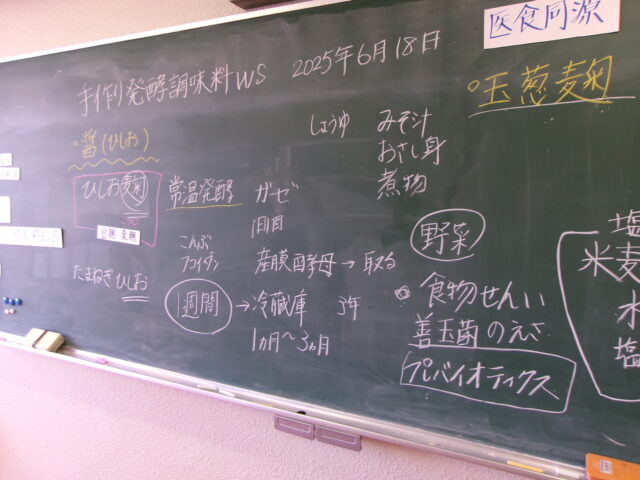 医食同源
手作り発酵調味料WS 2025年6月18日
玉葱麹
醤(ひしお)
ひしお麹
豆麹・麦麹
たまねぎひしお
常温発酵 ガーゼ
1日1回
こんぶ
フコイダン
産膜酵母→取る
1週間→冷蔵庫
1ヵ月〜3ヵ月
しょうゆ みそ汁
おさし身
煮物
野菜
食物せんい
善玉菌のえさ
プレバイオティクス
塩
米麦
水
塩